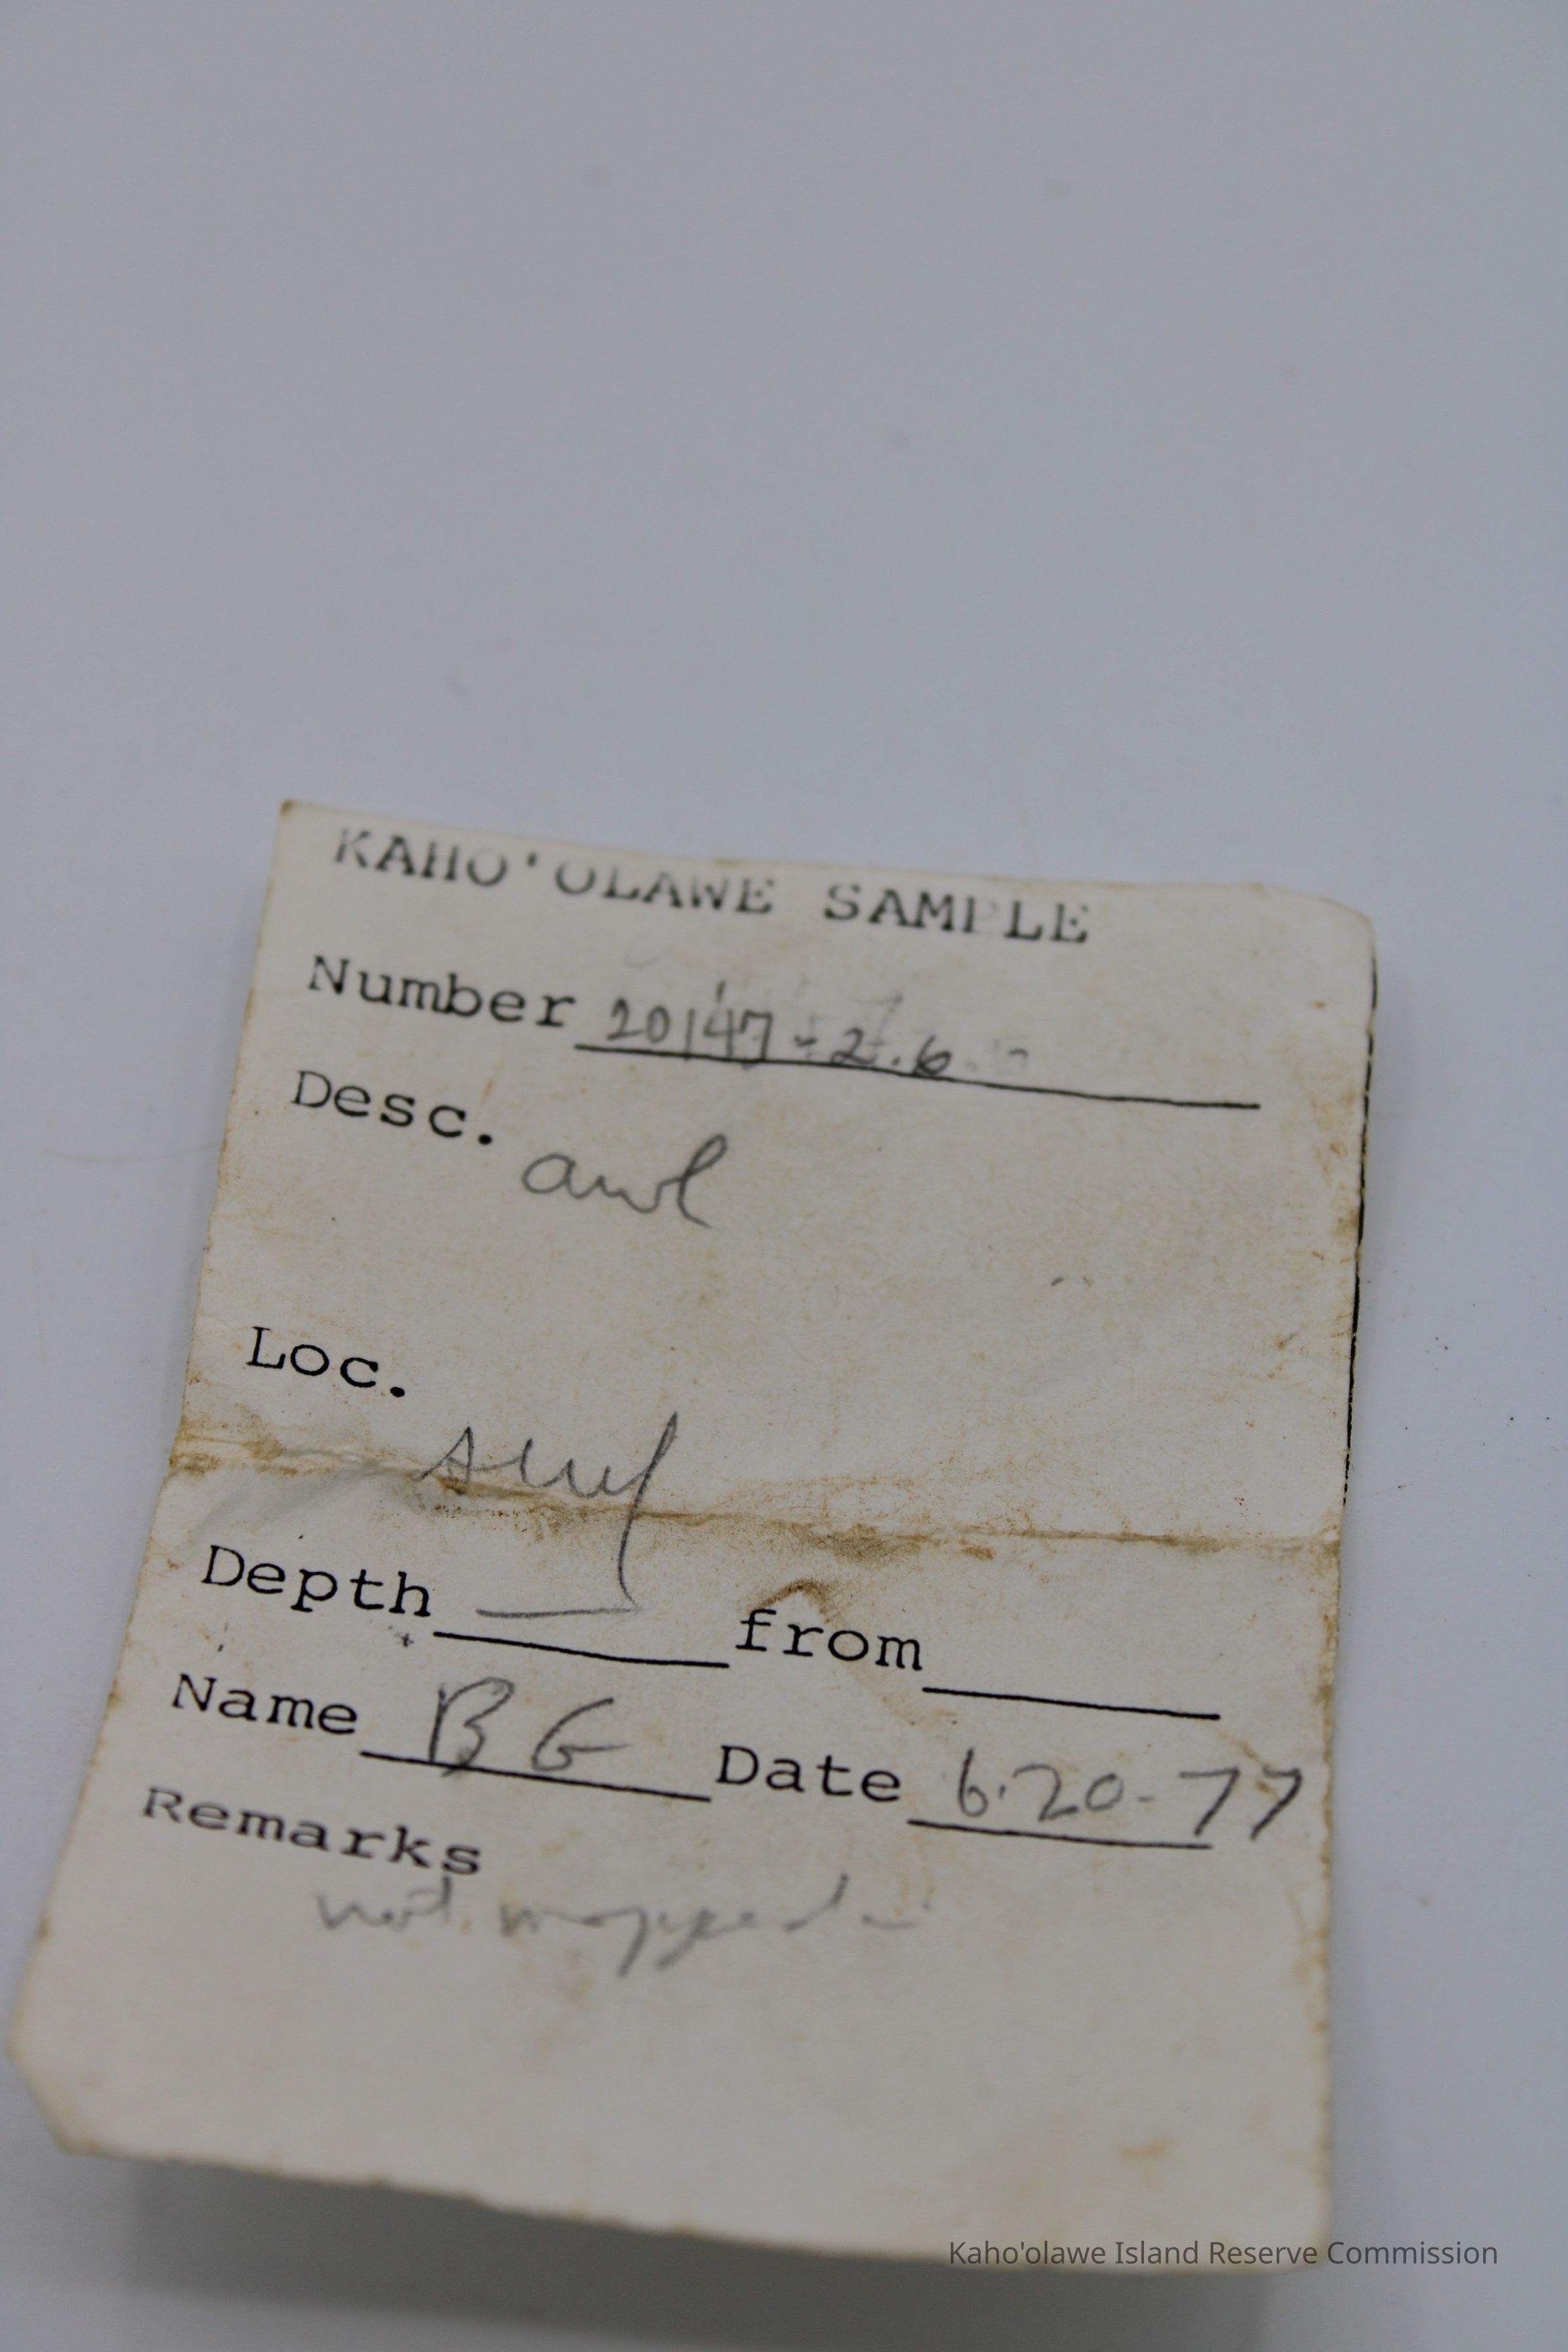 KAHO'OLAWE SAMPLE
Number 20147-2.6
Desc. awl
Loc. surf
Depth — from
Name BG Date 6.20-77
Remarks
not mapped
Kaho'olawe Island Reserve Commission